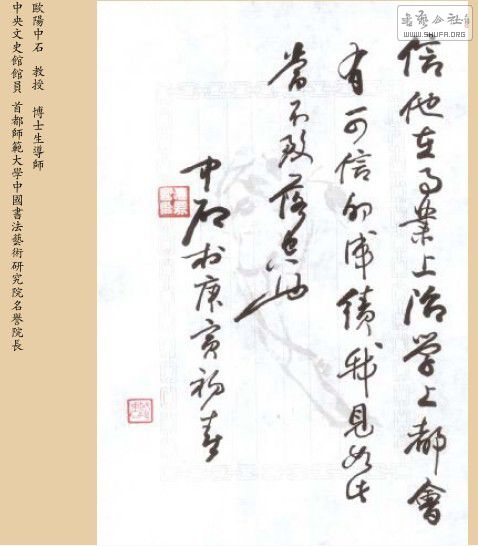 信他在事業上治學上都會
有可信的成績我見如此
當不致落空也
中石於庚寅初春
歐陽中石 教授 博士生導師
中央文史館館員 首都師範大學中國書法藝術研究院名譽院長
書藝公社
www.SHUFA.ORG